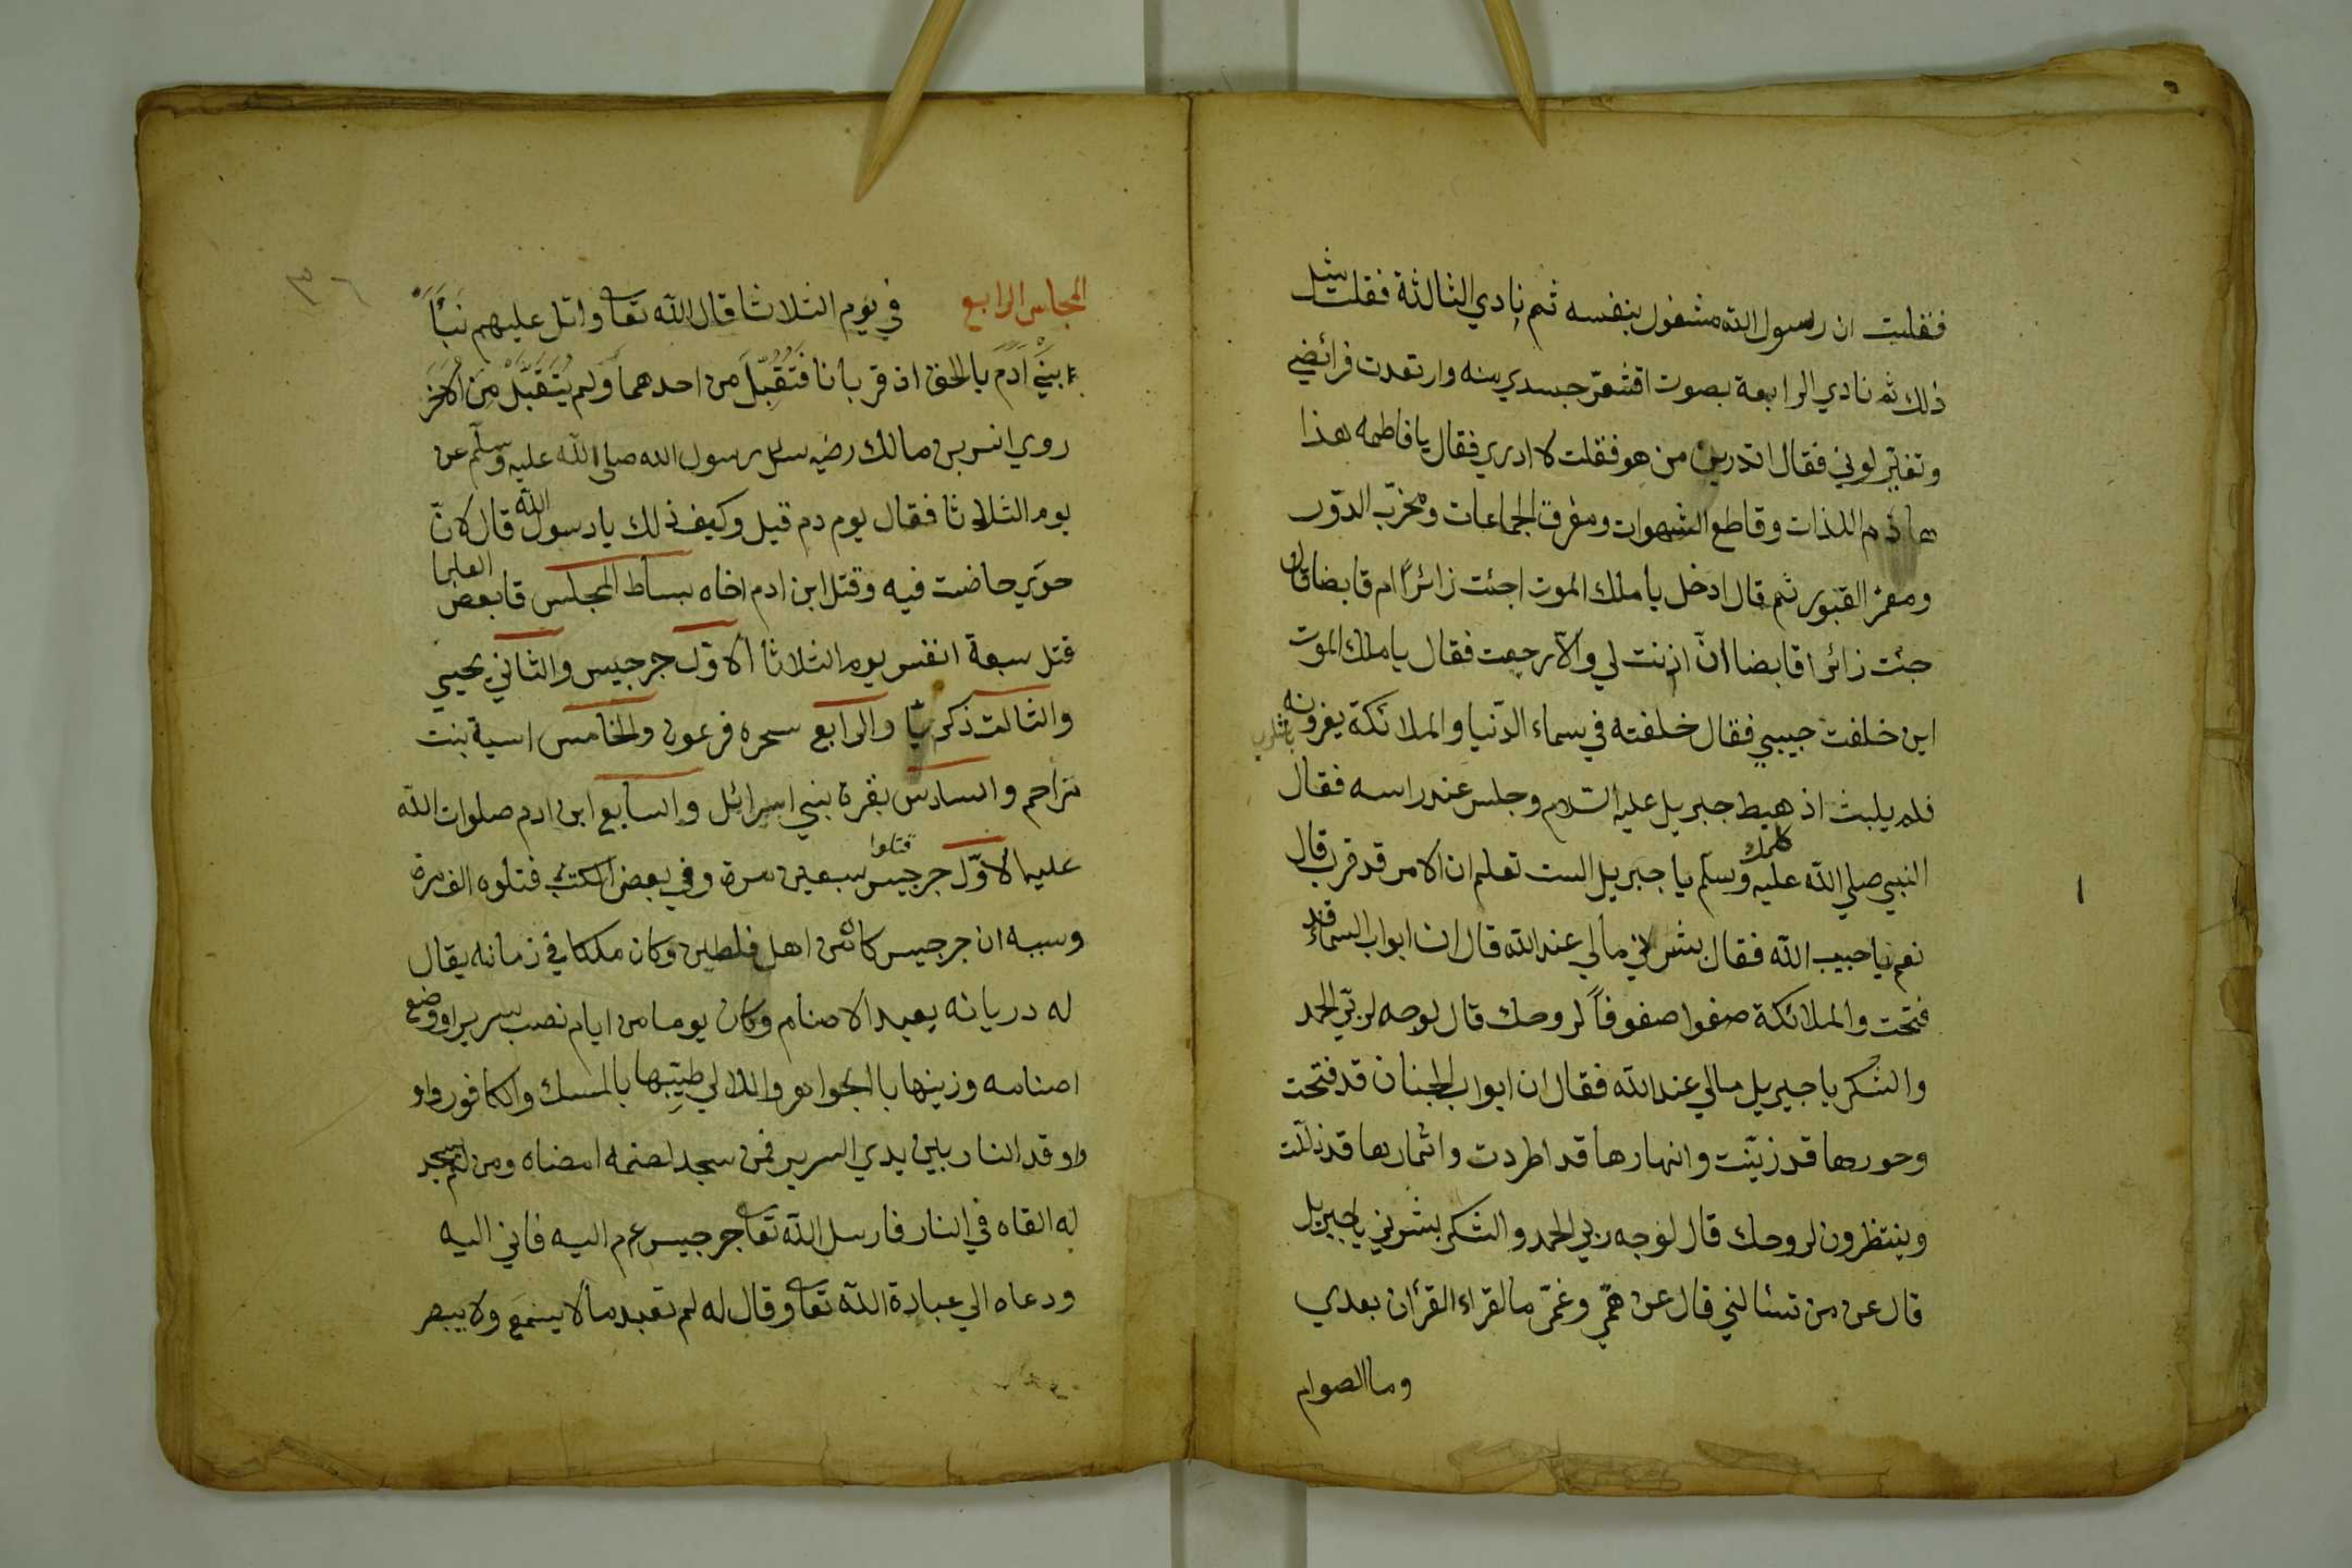 فقلت ان رسول الله مشغول بنفسه ثم نادي الثالثة فقلت مثل
ذلك ثم نادي الرابعة بصوت اقشعر جسدي منه وارتعدت فرائضي
وتغيّر لوني فقال اتدرين من هو فقلت لا ادري فقال يا فاطمه هذا
هاذم اللذات وقاطع الشهوات ومفرق الجماعات ومخرّب الدوّر
ومعمر القبور ثم قال ادخل يا ملك الموت اجئت زائراً ام قابضا قال
جئت زائرا قابضا انّ اذنت لي والّا رجعت فقال يا ملك الموت
اين خلفت حبيبي فقال خلفته في سماء الدّنيا والملائكة يعزونه
فلم يلبث اذ هبط جبريل عليه السّلام وجلس عند راسه فقال
النبيي صلي الله عليه وسلّم يا جبريل الست تعلم ان الامر قد قرب قال
نعم يا حبيب الله فقال بشرني مالي عند الله قال ان ابواب السماء قد
فتحت والملائكة صفوا صفوفاً لروحك قال لوجه لربّي الحمد
والشكر يا جبريل مالي عند الله فقال ان ابواب الجنان قد فتحت
وحورها قد زيّنت وانهارها قد اطردت واثمارها قد ذلّلت
وينتظرون لروحك قال لوجه ربي الحمد والشكر بشرني يا جبريل
قال عن من تسئالني قال عن همّي وغمّي ما لقراء القرأن بعدي
وما الصوام
٣٦
المجلس الرابع في يوم الثلاثا قال الله تعا واتل عليهم نَبَأَ
ابنَي آدَمَ بالحق اذ قربانا فَتُقُبِّلَ من احدهما ولم يُتَقَبَّلْ مِنَ الاخَر
روي انس بن مالك رضيه سئل رسول الله صلي الله عليه وسلّم عن
يوم الثلاثا فقال يوم دم قيل وكيف ذلك يا رسول الله قال لانّ
حوّي حاضت فيه وقتل ابن ادم اخاه بساط المجلس قا بعض العلما
قتل سبعة انفس يوم الثلاثا الاوّل جرجيس والثاني يحيي
والثالث ذكريّا والرابع سحره فرعون والخامس اسية بنت
مزاحم والسادس بقرة بني اسرائل والسابع ابن ادم صلوات الله
عليه الاوّل جرجيس قتلوا سبعين مرة وفي بعض الكتب قتلوه الف مرة
وسببه ان جرجيس كان من اهل فلطين وكان ملكا في زمانه يقال
له دريانه يعبد الاصنام وكان يوما من ايام نصب سريرا ووضع
اصنامه وزينها با الجواهر واللالي طيّبها بالمسك والكافور واو
واوقد النار بين يدي السرير فمن سجد لصنمه امضاه ومن لم يسجد
له القاه في النار فارسل الله تعا جرجيس عم اليه فاني اليه
ودعاه الي عبادة الله تعا وقال له لم تعبد ما لا يسمع ولا يبصر